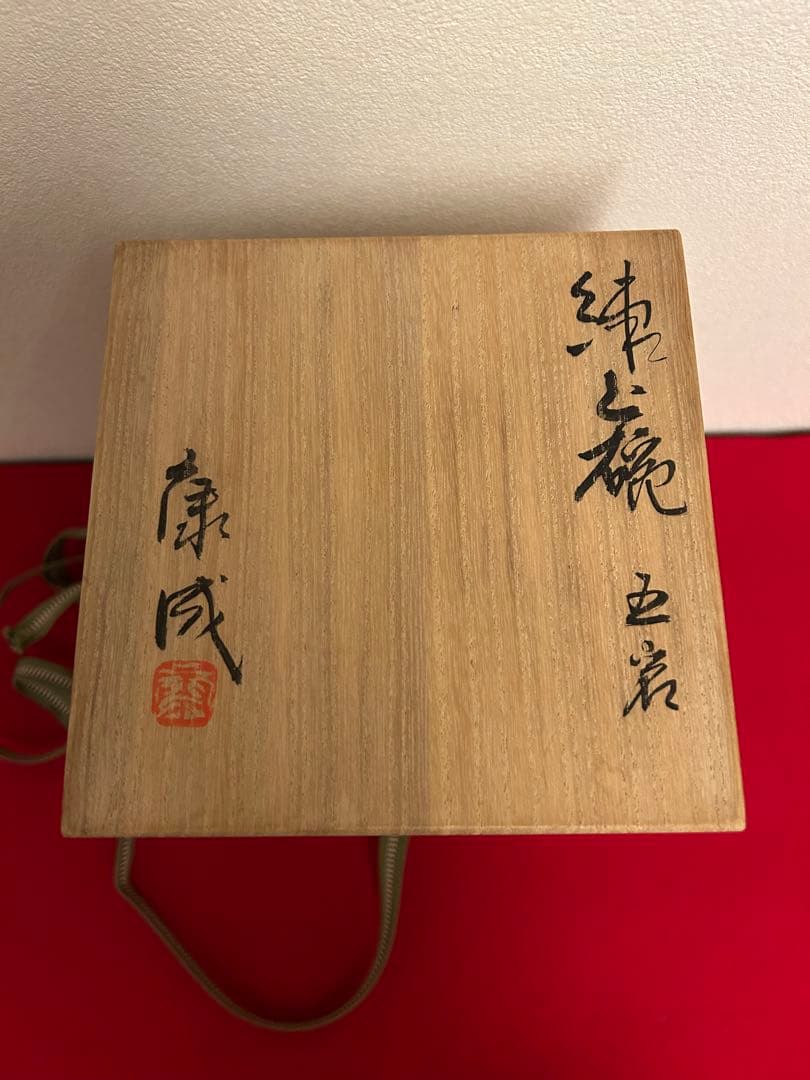 練上碗 五客
康成